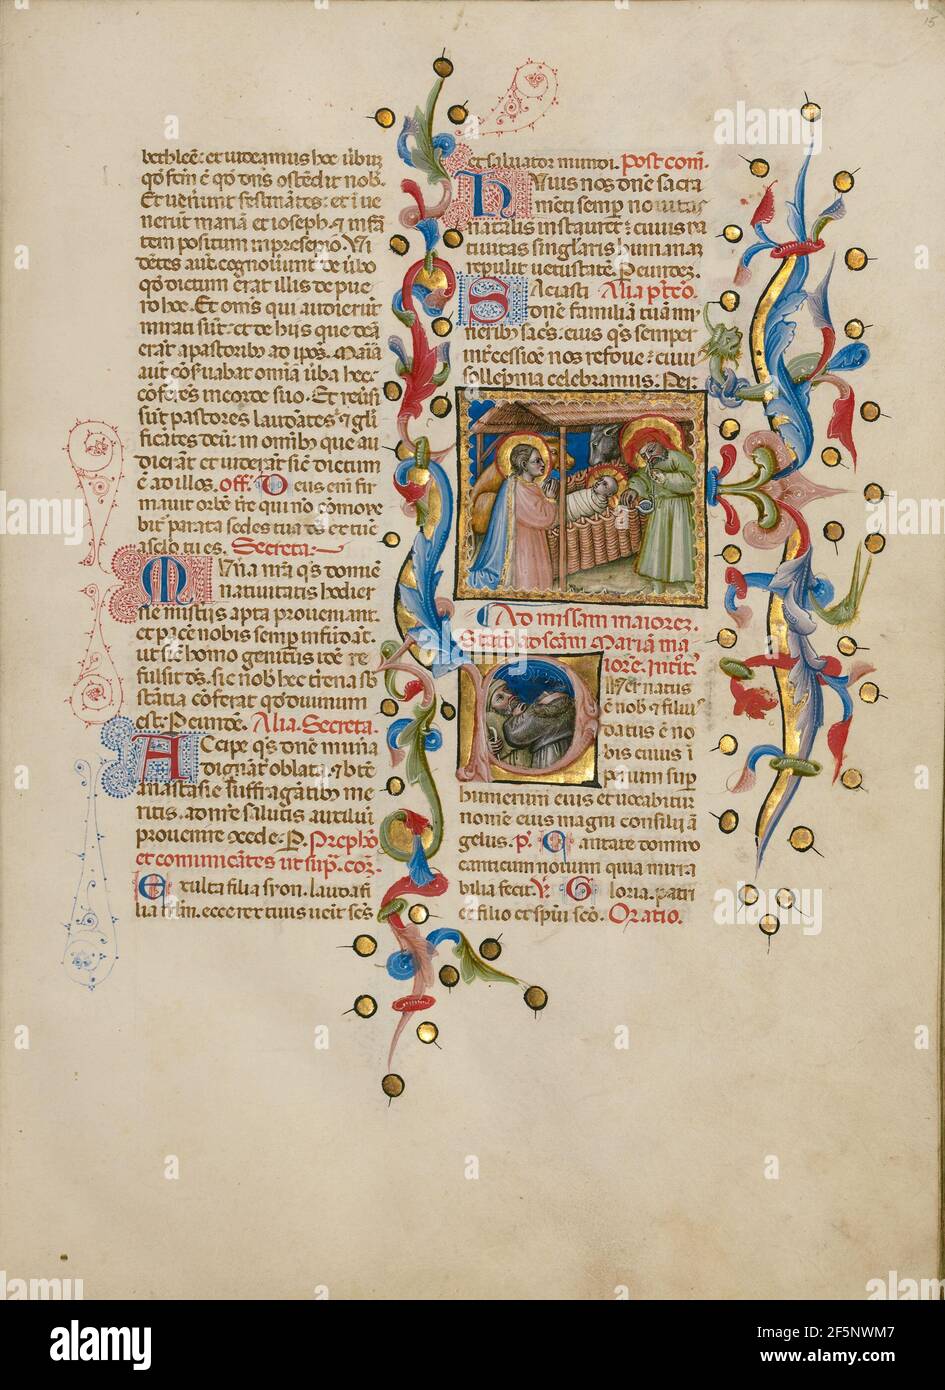 15
bethleē: et videamus hoc verbū
qđ fcm̄ ē qđ dn̄s ostēdit nob̄.
Et venerunt festinātes: et ive
nerūt mariā et ioseph. et infā
tem positum in presepio. Vi
dētes aut̄ cognoverūt de v̄bo
qđ dictum erāt illis de pue
ro hoc. Et om̄s qui audierūt
mirati sūt: et de hijs que dcā
erāt a pastorib; ad ip̄os. Maria
aut̄ cōs̄vabat omnia v̄ba hec.
cōferēs in corde suo. Et reūsi
sūt pastores laudātes et glī
ficātes deū: in omnib; que au
dierāt et viderāt sic̄ dictum
ē ad illos. off. Deus eni fir
mavit orbē tr̄e qui nō cōmove
bit̄ parata sedes tua d̄s ex tūc
a sc̄lo tu es. Secreta:
Munera nr̄a q̄s domīe
nativitatis hodier
ne misterijs apta proveniant.
et pacē nobis semp̄ infūdāt.
ut sic̄ homo genitus idē re
fulsit d̄s. sic nob̄ hec trena sb
stantia cōferat qđ divinum
est. P eundē. Alia. Secreta.
Accipe q̄s dn̄e munera
dignāt̄ oblata. et bt̄e
anastasie suffragātib; me
ritis. ad nr̄e salutis auxiliū
provenire cōcede. P. Prephō
et comunicātes ut sup̄. cōz
Exulta filia syon. lauda fi
lia hr̄lm. ecce rex tuus venit scs̄
et salvator mundi. Post com̄.
Huius nos dn̄e sacra
mēti semp̄ novitas
natalis instauret: cuius na
tivitas singl̄aris humanaʒ
repulit vetustatē. Per eūdeʒ.
Saciasti Alia p̄t cō.
dn̄e familiā tuā mu
nerib; sac̄s. eius q̄s semper
int̄cessiōe nos refove: cuius
sollēpnia celebramus. Per.
Ad missam maiorez.
Statio ad scām Mariā ma
iorē. Introit̄.
Puer natus
ē nob̄ et filius
datus ē no
bis cuius i
perium sup̄
humerum eius et vocabitur
nomē eius magni consilij ā
gelus. ps̄. Cantate domino
canticum novum quia mira
bilia fecit. V̄. Gloria. patri
et filio et sp̄ui scō. Oratio.
alamy
Image ID: 2F5NWM7
www.alamy.com